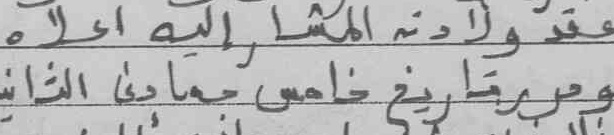 عقد ولادته المشار إليه اعلاه
وحرر بتاريخ خامس جمادى الثانية